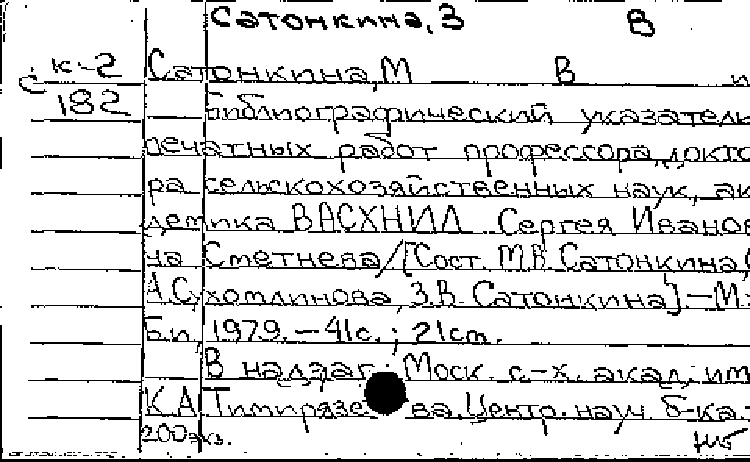 Сатонкина, З В
к-2 Сатонкина, М В и
с 182 Библиографический указатель
печатных работ профессора, докто
ра сельскохозяйственных наук, ак
демика ВАСХНИЛ Сергея Иванов
на Сметнева/[Сост. М.В. Сатонкина,
А.Сухомлинова, З.В. Сатонкина]. — М.:
Б.и, 1979. — 41с. ; 21см.
В надзаг.: Моск. с.-х. акад. им
К.А Тимирязева. Центр. науч. б-ка.
200экз.